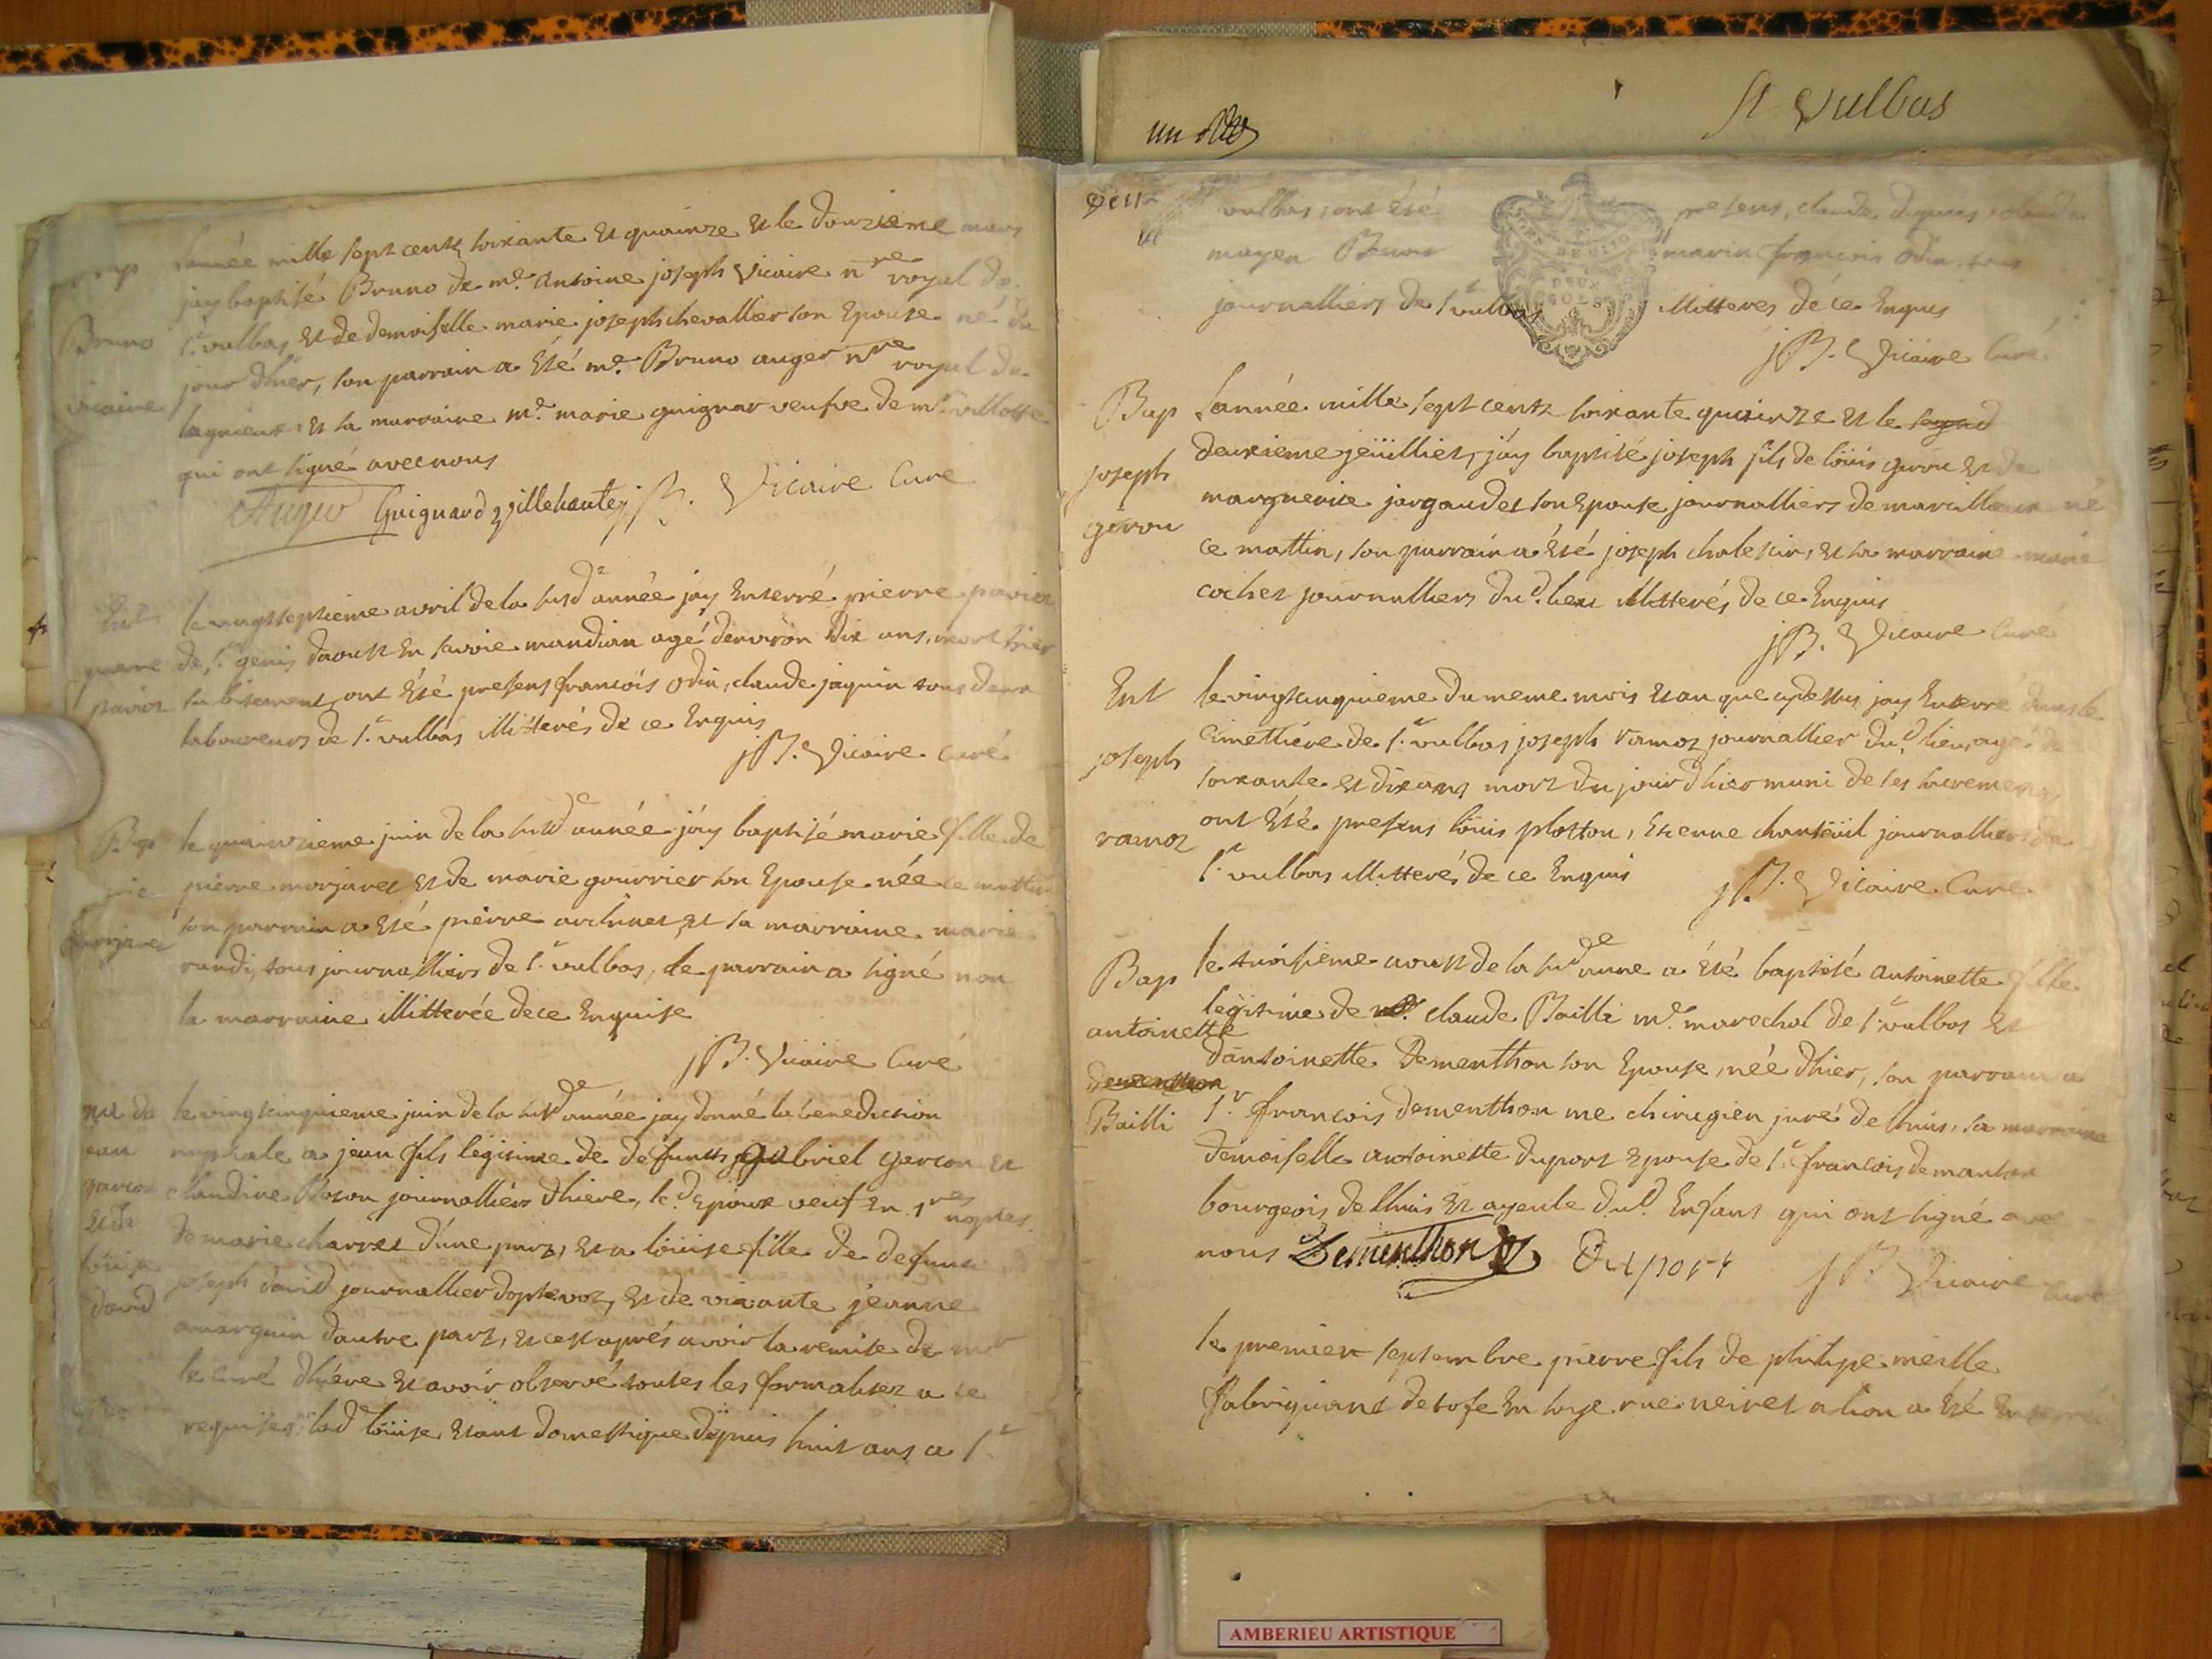 Bap
Bruno
vicaire
Lannée mille sept centz soixante et quainze et le douzieme mars
jay baptisé Bruno de me. antoine joseph vicaire nre royal de
st. vulbas et de demoiselle marie joseph chevallier son Epouse né du
jour dhier, son parrain a été me. Bruno auger nre royal de
lagnieux, et sa marraine me. marie guignar veufve de mr.
qui ont signé avec nous
Auger Guignard j B. Vicaire Curé
Ent
pierre
paviot
le vingt septieme avril de la susd. année jay Enterré pierre paviot
de st. genis daoust En savoie mandian agé denviron dix ans, mort hier
subitement, ont Eté presens francois odin, claude jaquin tous deux
laboureurs de st. vulbas illitterés de ce Enquis
j B. Vicaire Curé
Bap
marie
morjaret
le quainzieme juin de la susde année jáy baptisé marie fille de
pierre morjaret et de marie gourrier son Epouse née ce mattin
son parrain a Eté pierre arthinet et sa marraine marie
randi, tous journalliers de st. vulbas, le parrain a signé non
la marraine illitterée de ce Enquise
j B. Vicaire Curé
garcon
et de
loüise
david
le vingt cinquieme juin de la susde année jay donné la benediction
nuptiale a jean fils legitime de defunts gabriel garcon et
claudine Boson journalliérs dhiere, led. Epoux veuf En 1res nopces
de marie charvet d'une part, et a loüise fille de defunt
joseph david journallier doptevoz, et de vivante jeanne
amarguin dautre part, et ce aprés avoir la remise de mr
le curé dhiere et avoir observé toutes les formalités a ce
requises, lad. loüise, Etant domestique depuis huit ans a st
un
St Vulbas
Deux
vulbas, ont été presens, claude dupuis, claude
moyen Benoit marin francois odin, tous
journalliers de st. vulbas illitteres de ce Enquis
DEUX
SOLS
j B. Vicaire Curé
Bap
joseph
girou
Lannée mille sept centz soixante quainze et le segond
deuxieme jeüilliet, jáy baptisé joseph fils de loüis girou et de
marguerite jargaudet son Epouse journalliers de marcillieux né
ce mattin, son parrain a Eté joseph cholesin, et sa marraine marie
cochet journalliers dud. lieu illitterés de ce Enquis
j B. Vicaire Curé
Ent
joseph
ramoz
le vingt cinquieme du meme mois et an que cy dessus jay Enterré dans le
cimettiére de st. vulbas joseph ramoz journallier dud. lieu, agé de
soixante et dix ans mort du jour dhier muni de ses sacremens
ont Eté presens loüis plotton, Etienne chanteüil journalliers de
st. vulbas illitterés de ce Enquis
j B. Vicaire Curé
Bap
antoinette
dementhon
Bailli
le troisieme aoust de la sude anne a été baptisé antoinette fille
legitime de me. claude Bailli me. marechal de st. vulbas et
dantoinette Dementhon son Epouse, née dhier, son parrain a
sr. francois dementhon me chirugien juré de lhuis, sa marraine
demoiselle antoinette duport Epouse de sr. francois demanton
bourgeois de lhuis et ayeule dud. Enfant qui ont signé avec
nous Dementhon Duport j B. Vicaire Curé
le premier septembre pierre fils de philipe meille
fabriquant detofe En soye rue neiret a lion a Eté Enterré
AMBERIEU ARTISTIQUE